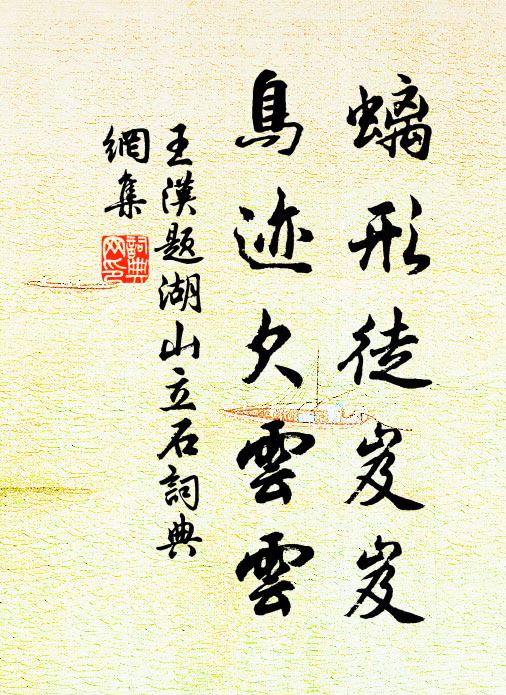 螭形徒岌岌
鳥迹久雲雲
王漢题湖山立石詞典
網集
詞典
网印